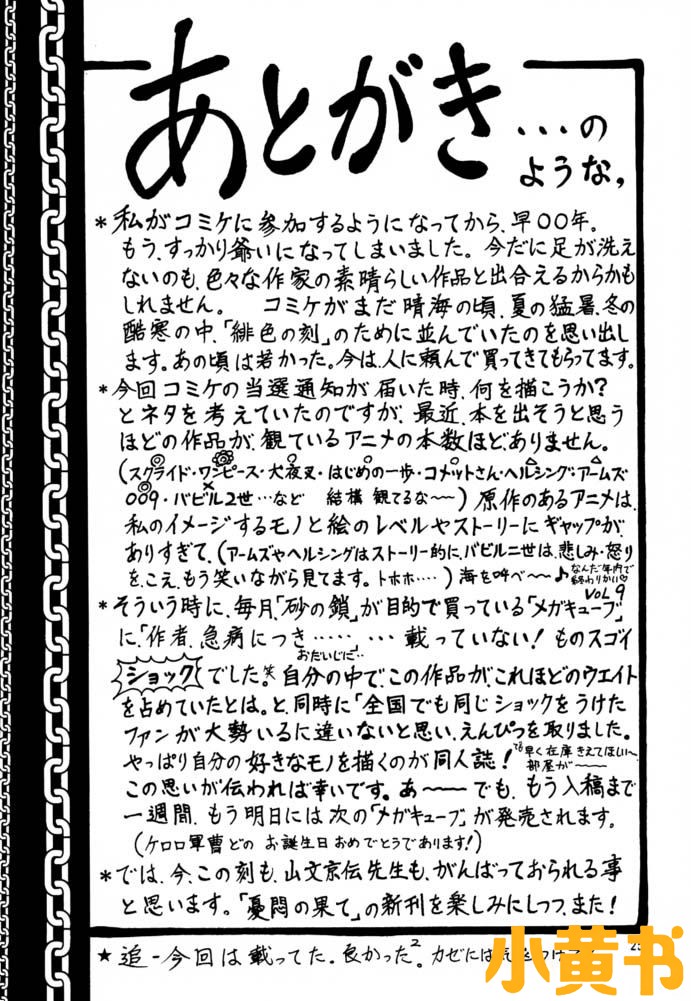 あとがき
・・・の
ような。
＊私がコミケに参加するようになってから、早〇〇年。
もう、すっかり爺いになってしまいました。今だに足が洗え
ないのも、色々な作家の素晴らしい作品と出合えるからかも
しれません。　コミケがまだ晴海の頃、夏の猛暑、冬の
酷寒の中、「緋色の刻」のために並んでいたのを思い出し
ます。あの頃は若かった。今は、人に頼んで買ってきてもらってます。
＊今回コミケの当選通知が届いた時、何を描こうか？
とネタを考えていたのですが、最近、本を出そうと思う
ほどの作品が、観ているアニメの本数ほど、ありません。
（スクライド・ワンピース・犬夜叉・はじめの一歩・コメットさん・ヘルシング・アームズ
009・バビル2世…など　結構 観てるな〜〜）原作のあるアニメは、
私のイメージするモノと絵のレベルやストーリーにギャップが
ありすぎて、（アームズやヘルシングはストーリー的に、バビル二世は、悲しみ・怒り
を、こえ、もう笑いながら見てます。トホホ‥‥）海を呼べ〜〜♪
なんだ年内で
終わりかい♡
VOL9
＊そういう時に、毎月、「砂の鎖」が目的で買っている「メガキューブ」
に、「作者、急病につき‥‥‥」…載っていない！ものスゴイ
おだいじに‥
ショックでした。笑 自分の中で、この作品が、これほどのウエイト
を占めていたとは。と、同時に「全国でも同じショックをうけた
ファンが大勢いるに違いないと思い、えんぴつを取りました。
やっぱり自分の好きなモノを描くのが同人誌！
でも早く在庫きえてほしい〜
部屋が〜〜
この思いが伝われば幸いです。あ〜〜でも、もう入稿まで
一週間、もう明日には次の「メガキューブ」が発売されます。
（ケロロ軍曹どの お誕生日おめでとうであります！）
＊では、今、この刻も、山文京伝先生も、がんばっておられる事
と思います。「憂悶の果て」の新刊を楽しみにしつつ、また！
★追－今回は載ってた。良かった²。カゼには
小黄书